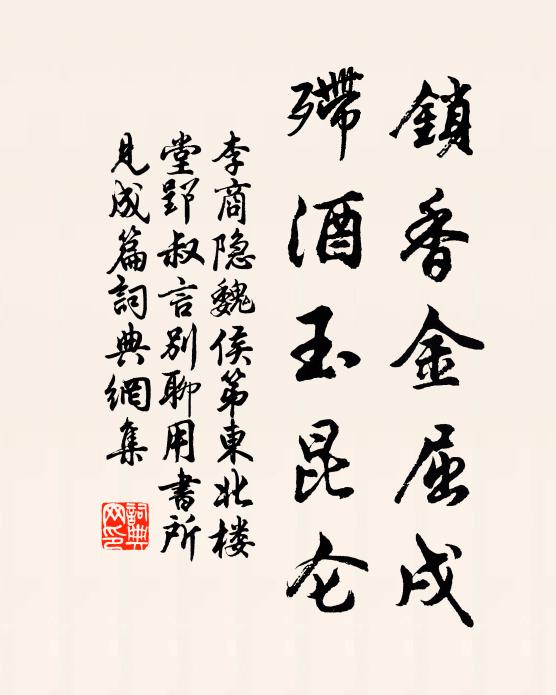 鎖香金屈戌
殢酒玉昆仑
李商隐魏侯第東北楼
堂郢叔言别聊用書所
見成篇詞典網集
詞典网印